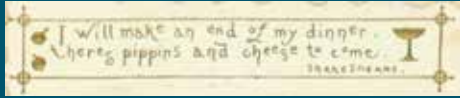 I will make an end of my dinner.
theres pippins and cheese to come.
Shakespeare.